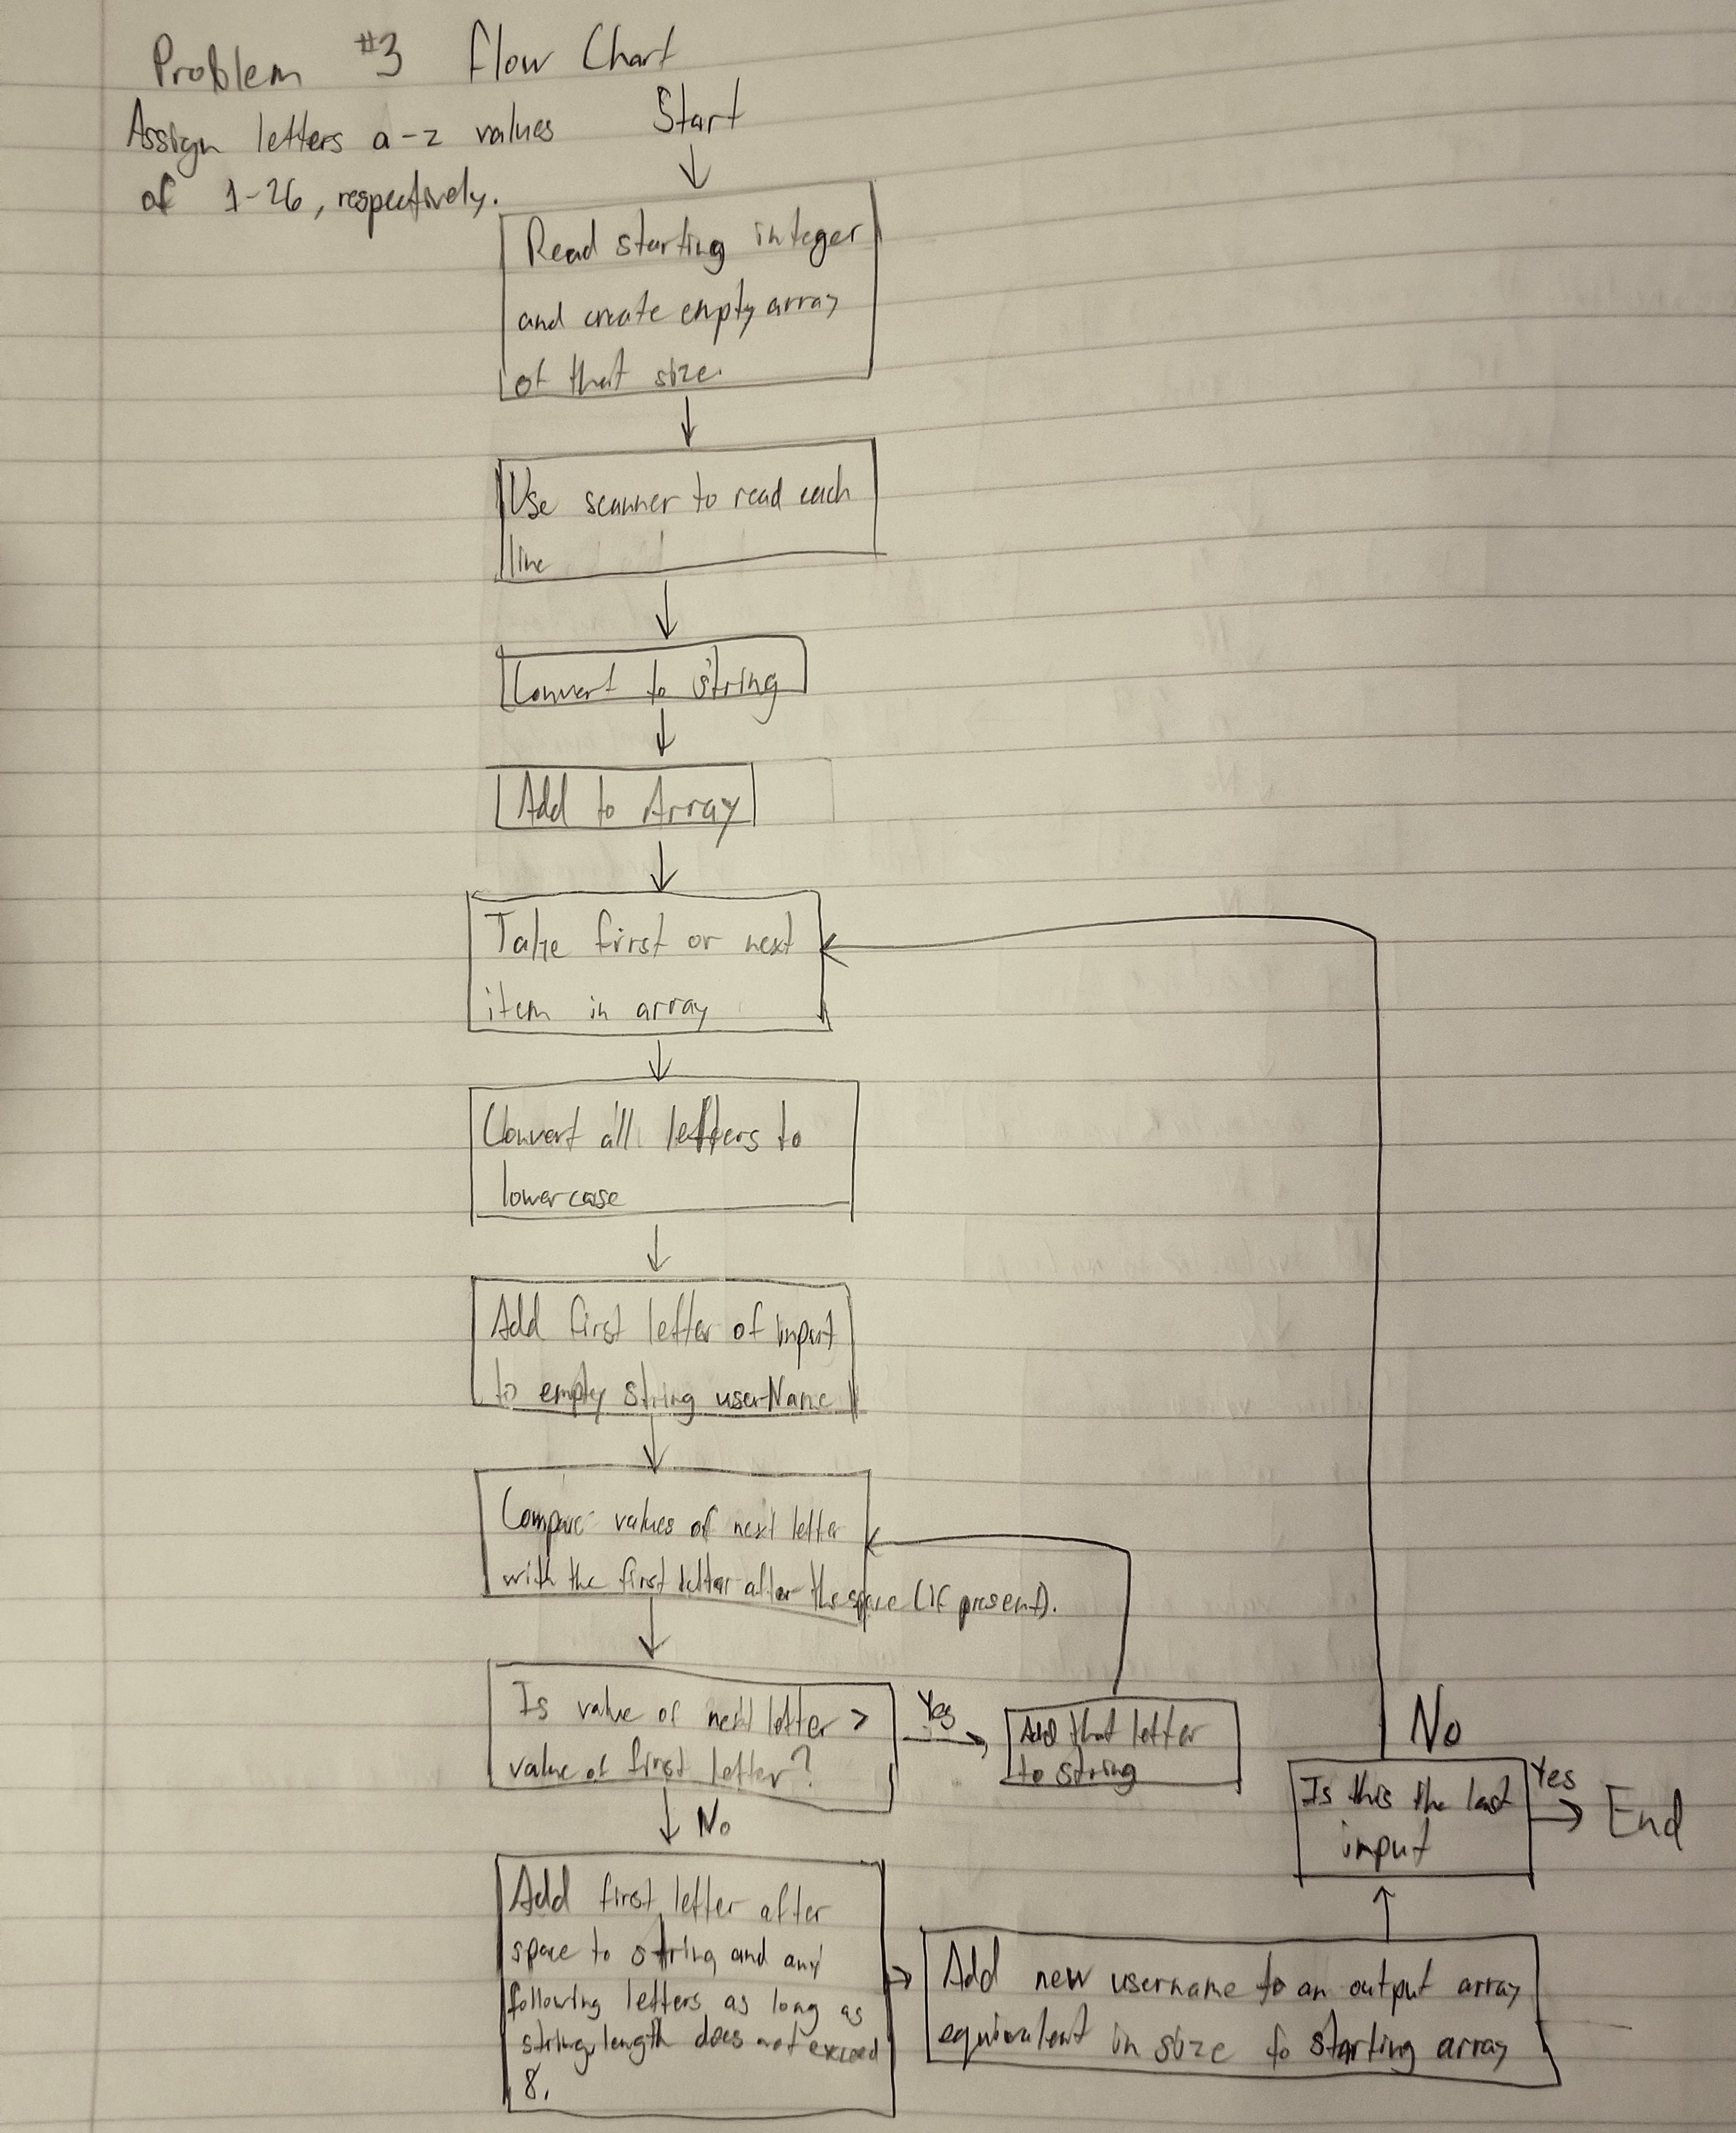 Problem #3 Flow Chart
Assign letters a-z values
of 1-26, respectively.
Start
Read starting integer
and create empty array
of that size.
Use scanner to read each
line
Convert to string
Add to Array
Take first or next
item in array
Convert all letters to
lowercase
Add first letter of input
to empty string userName
Compare values of next letter
with the first letter after the space (if present).
Is value of next letter >
value of first letter?
Yes
Add that letter
to string
No
Add first letter after
space to string and any
following letters as long as
string length does not exceed
8.
Add new username to an output array
equivalent in size to starting array
Is this the last
input
No
Yes
End